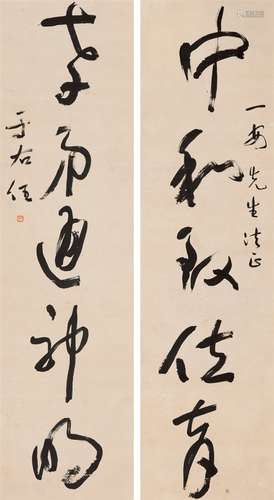 中和致位育
先生法正
孝弟通神明
于右任